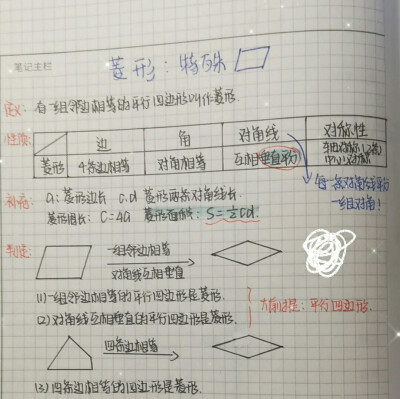 笔记主栏
菱形:特殊
定义:有一组邻边相等的平行四边形叫作菱形.
性质: 边 角 对角线 对称性
菱形 4条边相等 对角相等 互相垂直平分 轴对称(2条)
中心对称
每一条对角线平分
一组对角!
补充: a:菱形边长 c.d 菱形两条对角线长.
菱形周长: C=4a 菱形面积: S=½cd.
判定: 一组邻边相等
对角线互相垂直
(1)一组邻边相等的平行四边形是菱形.
(2)对角线互相垂直的平行四边形是菱形.
大前提:平行四边形.
四条边相等
(3)四条边相等的四边形是菱形.